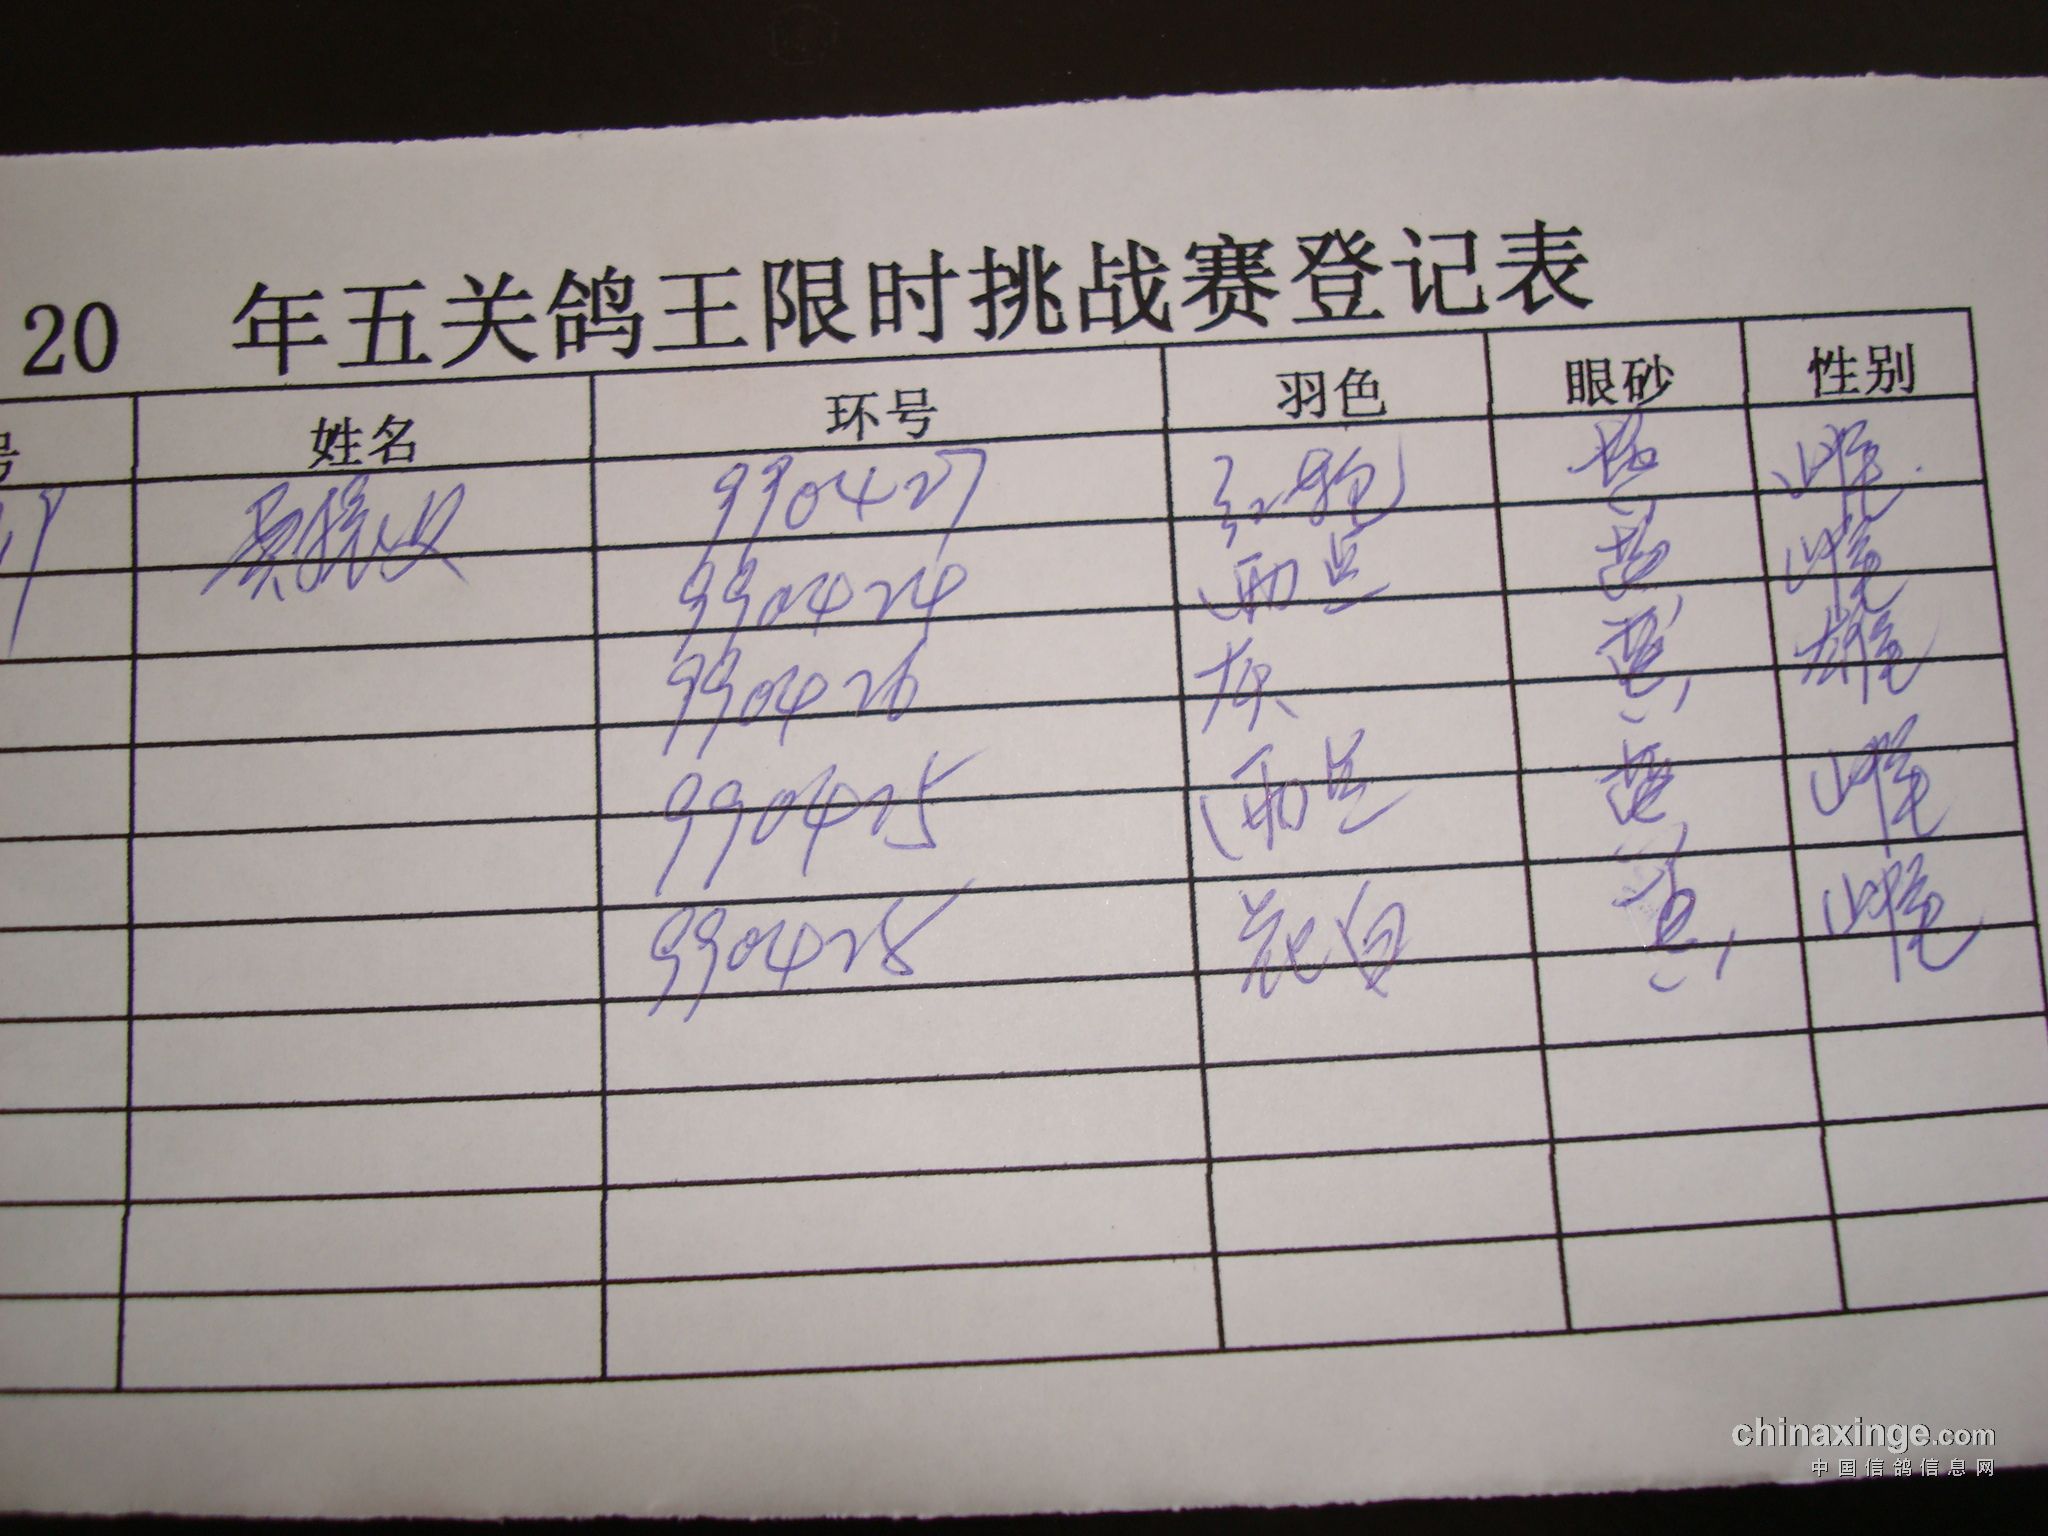 20 年五关鸽王限时挑战赛登记表
号 姓名 环号 羽色 眼砂 性别
990427 红轮 黄 雌
990424 雨点 黄 雌
990426 灰 黄 雄
990425 雨点 黄 雌
990428 花白 黄 雌
chinaxinge.com
中国信鸽信息网